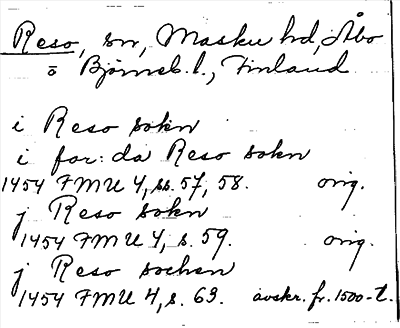 Reso, sn, Masku hd, Åbo
o Björneb. l., Finland
i Reso sokn
i for:da Reso sokn
1454 FMU 4, ss. 57, 58. orig.
j Reso sokn
1454 FMU 4, s. 59. orig.
j Reso sochen
1454 FMU 4, s. 63. avskr. fr. 1500-t.